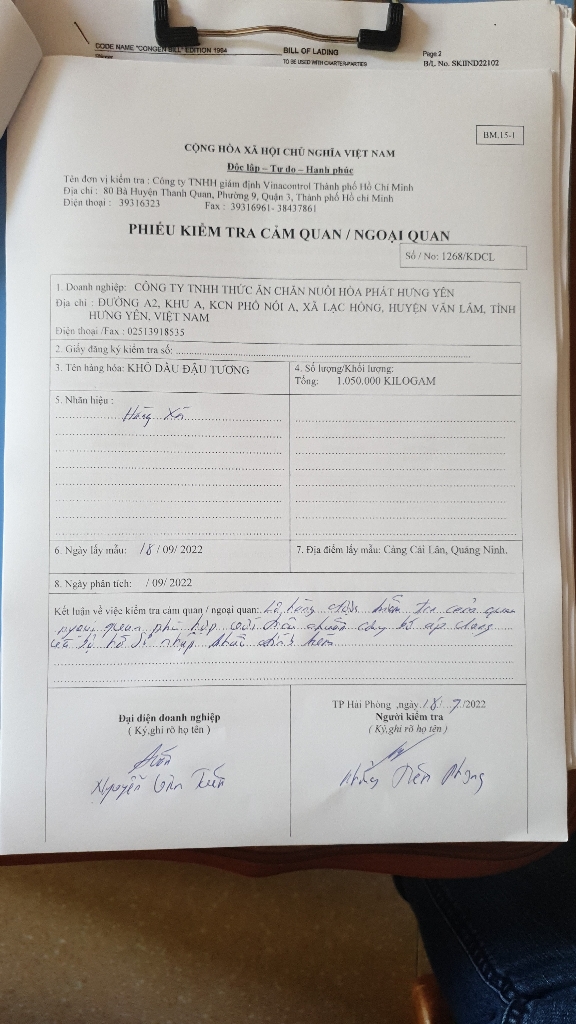 CODE NAME "CONGEN BILL" EDITION 1994
BILL OF LADING
TO BE USED WITH CHARTER-PARTIES
Page 2
B/L No. SKIIND22102
BM.15-1
CỘNG HÒA XÃ HỘI CHỦ NGHĨA VIỆT NAM
Độc lập – Tự do – Hạnh phúc
Tên đơn vị kiểm tra : Công ty TNHH giám định Vinacontrol Thành phố Hồ Chí Minh
Địa chỉ : 80 Bà Huyện Thanh Quan, Phường 9, Quận 3, Thành phố Hồ chí Minh
Điện thoại : 39316323 Fax : 39316961- 38437861
PHIẾU KIỂM TRA CẢM QUAN / NGOẠI QUAN
Số / No: 1268/KDCL
1. Doanh nghiệp: CÔNG TY TNHH THỨC ĂN CHĂN NUÔI HÒA PHÁT HƯNG YÊN
Địa chỉ : ĐƯỜNG A2, KHU A, KCN PHỐ NỐI A, XÃ LẠC HỒNG, HUYỆN VĂN LÂM, TỈNH
HƯNG YÊN, VIỆT NAM
Điện thoại /Fax : 02513918535
2. Giấy đăng ký kiểm tra số:
3. Tên hàng hóa: KHÔ DẦU ĐẬU TƯƠNG
4. Số lượng/Khối lượng:
Tổng: 1.050.000 KILOGAM
5. Nhãn hiệu :
Hàng Xá
6. Ngày lấy mẫu: 18 / 09/ 2022
7. Địa điểm lấy mẫu: Cảng Cái Lân, Quảng Ninh.
8. Ngày phân tích: / 09/ 2022
Kết luận về việc kiểm tra cảm quan / ngoại quan: Lô hàng được kiểm tra cảm quan
ngoại quan phù hợp với tiêu chuẩn công bố áp dụng
và hồ sơ nhập khẩu đính kèm
Đại diện doanh nghiệp
( Ký,ghi rõ họ tên )
Nguyễn Văn
TP Hải Phòng ,ngày 18 / 9 /2022
Người kiểm tra
( Ký,ghi rõ họ tên )
Tiến Phong